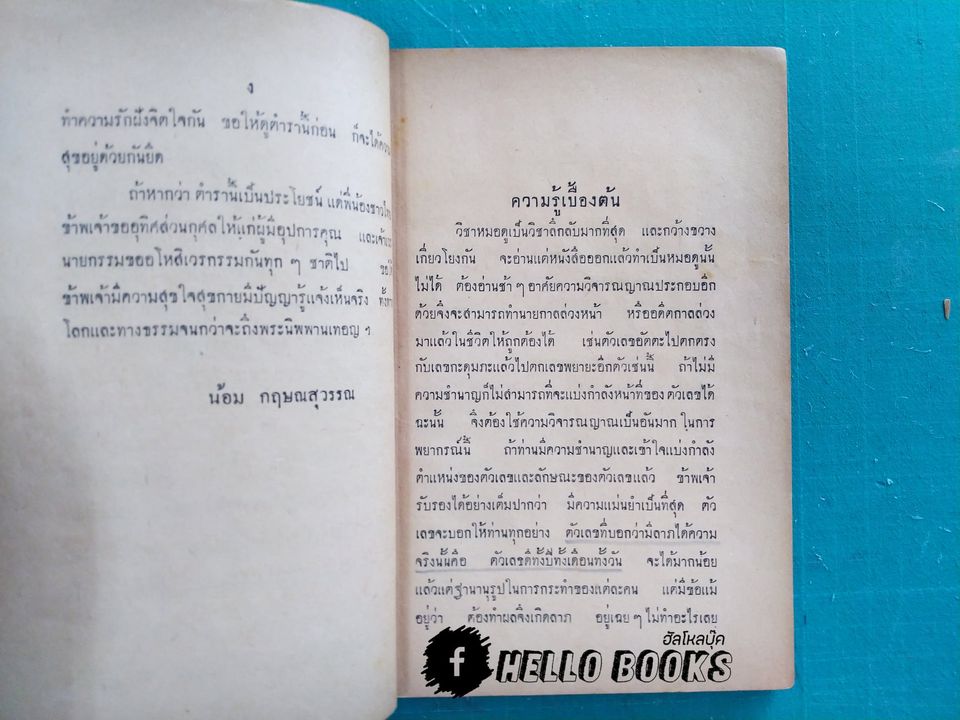 ง
ทำความรักฝังจิตใจกัน ขอให้ดูตำรานี้ก่อน ก็จะได้ความ
สุขอยู่ด้วยกันยืด
ถ้าหากว่า ตำรานี้เป็นประโยชน์ แด่พี่น้องชาวไทย
ข้าพเจ้าขออุทิศส่วนกุศลให้แก่ผู้มีอุปการคุณ และเจ้า
นายกรรมขออโหสิเวรกรรมกันทุก ๆ ชาติไป
ข้าพเจ้ามีความสุขใจสุขกายมีปัญญารู้แจ้งเห็นจริง
โลกและทางธรรมจนกว่าจะถึงพระนิพพานเทอญ ฯ
น้อม กฤษณสุวรรณ
ความรู้เบื้องต้น
วิชาหมอดูเป็นวิชาลึกลับมากที่สุด และกว้างขวาง
เกี่ยวโยงกัน จะอ่านแต่หนังสือออกแล้วทำเป็นหมอดูนั้น
ไม่ได้ ต้องอ่านช้า ๆ อาศัยความวิจารณญาณประกอบอีก
ด้วยจึ่งจะสามารถทำนายกาลล่วงหน้า หรืออดีตกาลล่วง
มาแล้วในชีวิตให้ถูกต้องได้ เช่นตัวเลขอัตตะไปตกตรง
กับเลขกะดุมภะแล้วไปตกเลขพยายะอีกตัวเช่นนี้ ถ้าไม่มี
ความชำนาญก็ไม่สามารถที่จะแบ่งกำลังหน้าที่ของ ตัวเลขได้
ฉะนั้น จึ่งต้องใช้ความวิจารณญาณเป็นอันมาก ในการ
พยากรณ์นี้ ถ้าท่านมีความชำนาญและเข้าใจแบ่งกำลัง
ตำแหน่งของตัวเลขและลักษณะของตัวเลขแล้ว ข้าพเจ้า
รับรองได้อย่างเต็มปากว่า มีความแม่นยำเป็นที่สุด ตัว
เลขจะบอกให้ท่านทุกอย่าง ตัวเลขที่บอกว่ามีลาภได้ความ
จริงนั้นคือ ตัวเลขดีทั้งปีทั้งเดือนทั้งวัน จะได้มากน้อย
แล้วแต่ฐานานุรูปในการกระทำของแต่ละคน แต่มีข้อแม้
อยู่ว่า ต้องทำผลจึงเกิดลาภ อยู่เฉย ๆ ไม่ทำอะไรเลย
ฮัลโหลบุ๊ค
f HELLO BOOKS